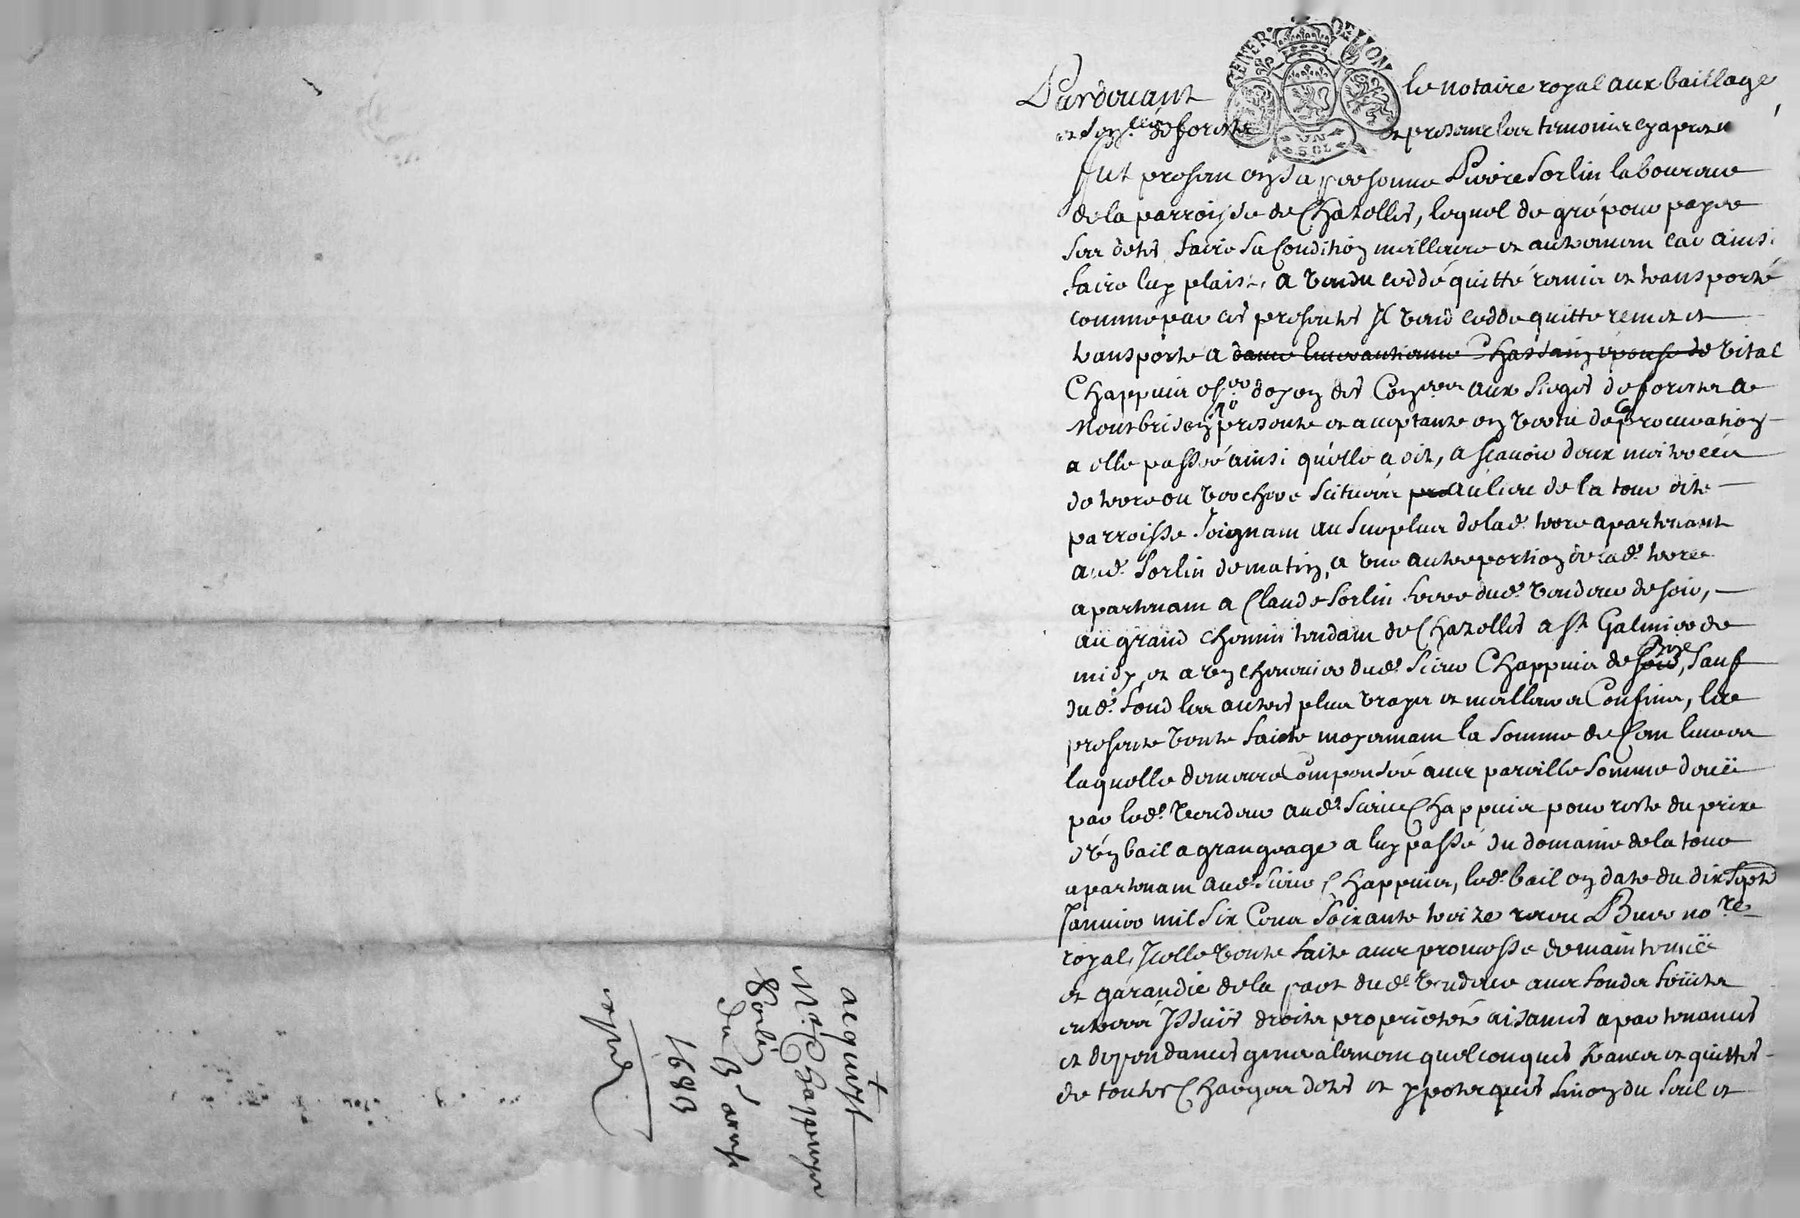 GENER DE LYON
UN SOL
Pardevant le notaire royal aux baillage
et de forestz et presentz les temoins cy apres n
fut present en sa personne Pierre Sorlin laboureur
de la parroisse de Chazelles, lequel de gré pour payer
ses detes faire sa Condition meilleure et autrement car ainsi
faire luy plaist, a vendu ceddé quitté remis et transporté
comme par ces presentes Il vend cedde quitte remet et
transporte a dame Chassain epouse de Vital
Chappuis doyen des aux sieges de forestz a
Montbrison presente et acceptante en vertu de procuration
a elle passée ainsi qu'elle a dit, a scavoir deux
de terre ou verchere scituées au lieu de la tour dite
parroisse Joignant au surplus de lad. terre apartenant
aud. Sorlin de matin, a une autre portion de lad. terre
apartenant a Claude Sorlin frere dud. vendeur de soir,
au grand chemin tendant de Chazelles a St Galmier de
midy, et a un chenevier dud. Sieur Chappuis de bize, sauf
dud. fond les autres plus vrays et meilleurs Confins, lae
presente vente faicte moyennant la somme de Cent livres
laquelle demeure Compensée avec pareille somme deuë
par led. vendeur aud. Sieur Chappuis pour reste du prix
d'un bail a grangeage a luy passé du domaine de la tour
apartenant aud. Sieur Chappuis, led. bail en date du dix sept
Janvier mil six Cens soixante treize receu no.re
royal, Icelle vente faite avec promesse de maintenuë
et garandie de la part dud. vendeur avec fonds
entrées Issues droits proprietés aisances apartenances
et dependances generalement quelconques francs et quittes
de toutes Charges detes et ypoteques sinon du seul et
acquist
Mr Chappuys
Sorlin
du
1683